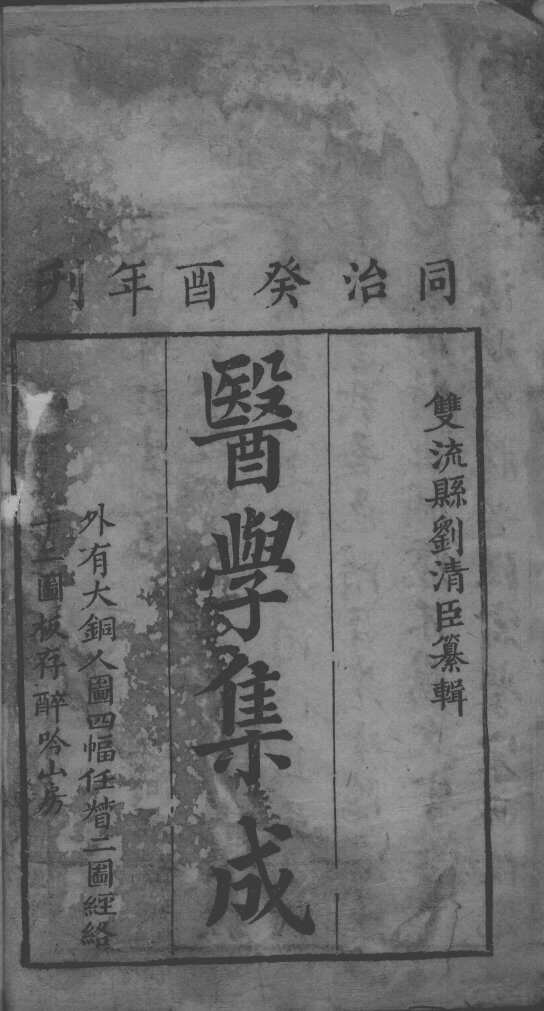 同治癸酉年刊
雙流縣劉清臣纂輯
醫學集成
外有大銅人圖四幅任督二圖經絡
十二圖板存醉吟山房